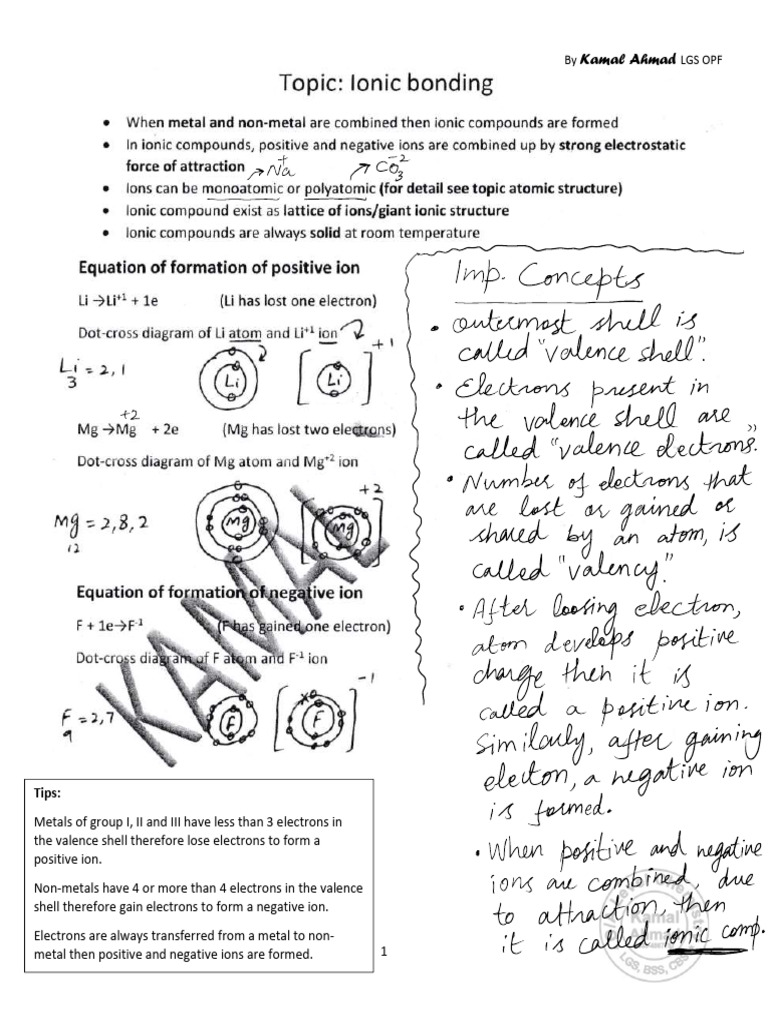 By Kamal Ahmad LGS OPF
Topic: Ionic bonding
• When metal and non-metal are combined then ionic compounds are formed
• In ionic compounds, positive and negative ions are combined up by strong electrostatic
force of attraction →Na+ ↗CO3-2
• Ions can be monoatomic or polyatomic (for detail see topic atomic structure)
• Ionic compound exist as lattice of ions/giant ionic structure
• Ionic compounds are always solid at room temperature
Equation of formation of positive ion
Li →Li+1 + 1e (Li has lost one electron)
Dot-cross diagram of Li atom and Li+1 ion
Li = 2,1
3
Li
Li
+1
+2
Mg →Mg + 2e (Mg has lost two electrons)
Dot-cross diagram of Mg atom and Mg+2 ion
Mg = 2,8,2
12
Mg
Mg
+2
Equation of formation of negative ion
F + 1e→F-1 (F has gained one electron)
Dot-cross diagram of F atom and F-1 ion
F = 2,7
9
F
F
-1
KAMAL
Tips:
Metals of group I, II and III have less than 3 electrons in
the valence shell therefore lose electrons to form a
positive ion.
Non-metals have 4 or more than 4 electrons in the valence
shell therefore gain electrons to form a negative ion.
Electrons are always transferred from a metal to non-
metal then positive and negative ions are formed.
Imp. Concepts
• Outermost shell is
called "valence shell".
• Electrons present in
the valence shell are
called "valence electrons."
• Number of electrons that
are lost or gained or
shared by an atom, is
called "valency."
• After loosing electron,
atom develops positive
charge then it is
called a positive ion.
Similarly, after gaining
electon, a negative ion
is formed.
• When positive and negative
ions are combined, due
to attraction, then
it is called ionic comp.
Kamal
Ahmad
LGS, BSS, CBS
1